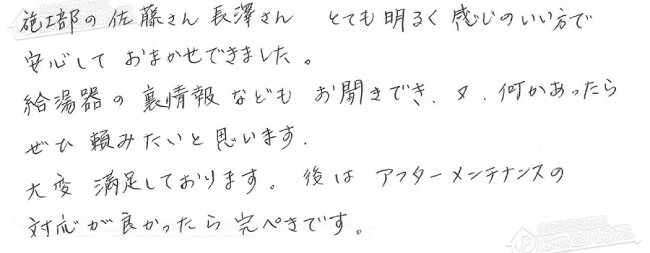 施工部の佐藤さん 長澤さん とても明るく感じのいい方で
安心しておまかせできました。
給湯器の裏情報などもお聞きでき、又、何かあったら
ぜひ頼みたいと思います.
大変満足しております。後はアフターメンテナンスの
対応が良かったら完ぺきです。